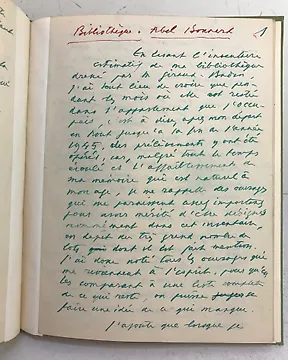 Bibliothèque. Abel Bonnard 1
En lisant l'inventaire
estimatif de ma bibliothèque
dressé par M. Giraud-Badin
j'ai tout lieu de croire que pen-
dant les mois où elle est restée
dans l'appartement que j'occu-
pais, c'est à dire, après mon départ
en Août jusqu'à la fin de l'année
1945, des prélèvements y ont été
opérés, car, malgré tout le temps
écoulé et l'affaiblissement de
ma mémoire qui est naturel à
mon âge, je me rappelle des ouvrages
qui me paraissent assez importants
pour avoir mérité d'être désignés
nommément dans cet inventaire,
en dépit du très grand nombre de
lots dont il est fait mention.
J'ai donc noté tous les ouvrages qui
me revenaient à l'esprit, pour qu'en
les comparant à une liste complète
de ce qui reste, on puisse se
faire une idée de ce qui manque.
J'ajoute que lorsque je